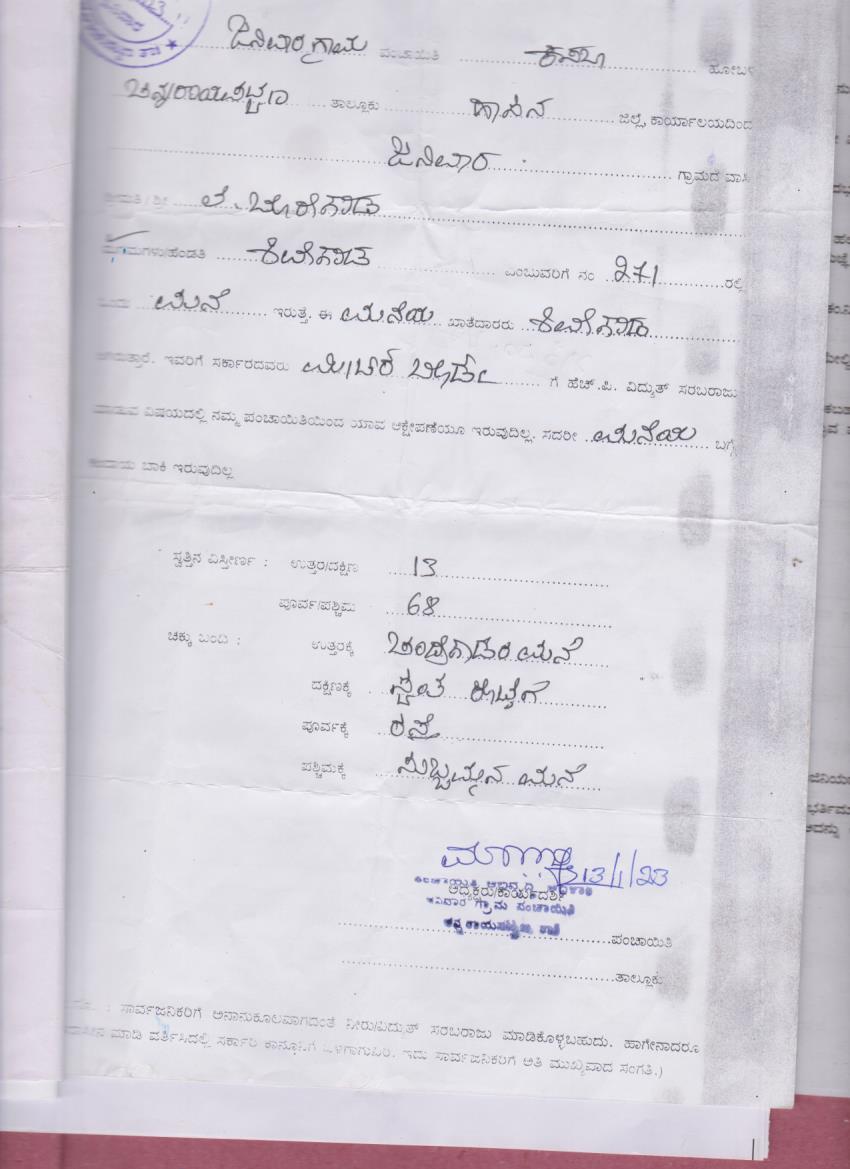 ಜನಿವಾರ ಗ್ರಾಮ ಪಂಚಾಯಿತಿ ಕಸಬಾ ಹೋಬಳಿ
ಚನ್ನರಾಯಪಟ್ಟಣ ತಾಲ್ಲೂಕು ಹಾಸನ ಜಿಲ್ಲೆ, ಕಾರ್ಯಾಲಯದಿಂದ
ಜನಿವಾರ ಗ್ರಾಮದ ವಾಸಿ
ಶ್ರೀಮತಿ / ಶ್ರೀ ಲೇ. ಬೋರೇಗೌಡ
ಮಗ/ಮಗಳು/ಹೆಂಡತಿ ಎಂಬುವರಿಗೆ ನಂ 271 ರಲ್ಲಿ
ಒಂದು ಮನೆ ಇರುತ್ತೆ. ಈ ಮನೆಯ ಖಾತೆದಾರರು
ಆಗಿರುತ್ತಾರೆ. ಇವರಿಗೆ ಸರ್ಕಾರದವರು ಮೀಟರ್ ಬೋರ್ಡ್ ಗೆ ಹೆಚ್.ಪಿ. ವಿದ್ಯುತ್ ಸರಬರಾಜು
ಮಾಡುವ ವಿಷಯದಲ್ಲಿ ನಮ್ಮ ಪಂಚಾಯಿತಿಯಿಂದ ಯಾವ ಆಕ್ಷೇಪಣೆಯೂ ಇರುವುದಿಲ್ಲ. ಸದರೀ ಮನೆಯ ಬಗ್ಗೆ
ಕಂದಾಯ ಬಾಕಿ ಇರುವುದಿಲ್ಲ
ಸ್ವತ್ತಿನ ವಿಸ್ತೀರ್ಣ : ಉತ್ತರ/ದಕ್ಷಿಣ 13
ಪೂರ್ವ/ಪಶ್ಚಿಮ 68
ಚಕ್ಕು ಬಂದಿ : ಉತ್ತರಕ್ಕೆ ಚಂದ್ರೇಗೌಡರ ಮನೆ
ದಕ್ಷಿಣಕ್ಕೆ ಸ್ವಂತ
ಪೂರ್ವಕ್ಕೆ ರಸ್ತೆ
ಪಶ್ಚಿಮಕ್ಕೆ ಮನೆ
13/1/23
ಅಧ್ಯಕ್ಷರು/ಕಾರ್ಯದರ್ಶಿ
ಜನಿವಾರ ಗ್ರಾಮ ಪಂಚಾಯಿತಿ
ಪಂಚಾಯಿತಿ
ತಾಲ್ಲೂಕು
: ಸಾರ್ವಜನಿಕರಿಗೆ ಅನಾನುಕೂಲವಾಗದಂತೆ ನೀರು/ವಿದ್ಯುತ್ ಸರಬರಾಜು ಮಾಡಿಕೊಳ್ಳಬಹುದು. ಹಾಗೇನಾದರೂ
ಮಾಡಿ ವರ್ತಿಸಿದಲ್ಲಿ ಸರ್ಕಾರಿ ಕಾನೂನಿಗೆ ಒಳಗಾಗುವಿರಿ. ಇದು ಸಾರ್ವಜನಿಕರಿಗೆ ಅತಿ ಮುಖ್ಯವಾದ ಸಂಗತಿ.)